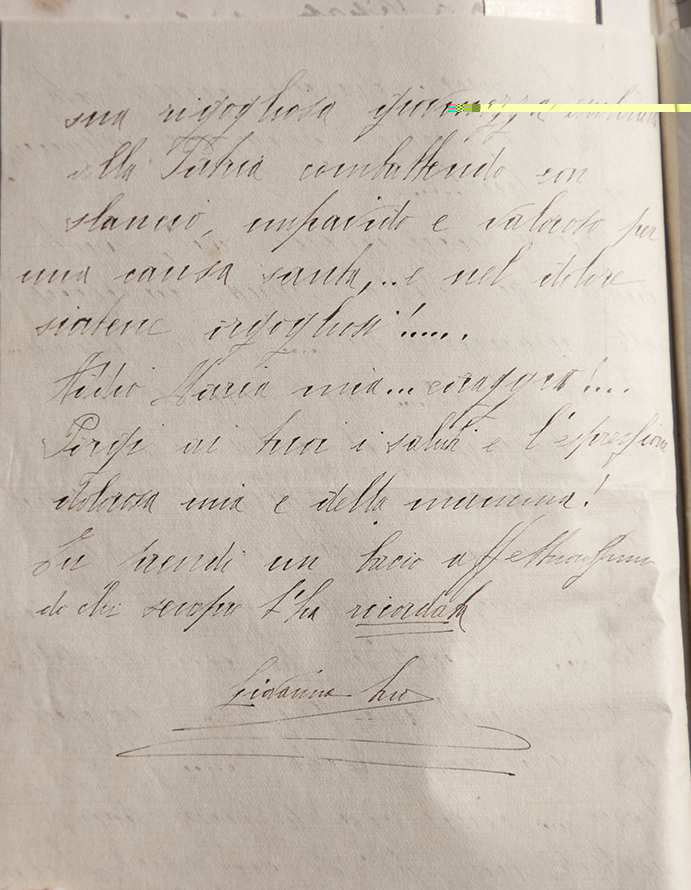 sua rigogliosa giovinezza
alla Patria combattendo con
slancio, impavido e valoroso per
una causa santa,.. e nel dolore
siatene orgogliosi!.....
Addio Maria mia... coraggio!....
Porgi ai tuoi i saluti e l'espressione
dolorosa mia e della mamma!
Tu prendi un bacio affettuosissimo
da chi sempre t'ha ricordata
Giovanna